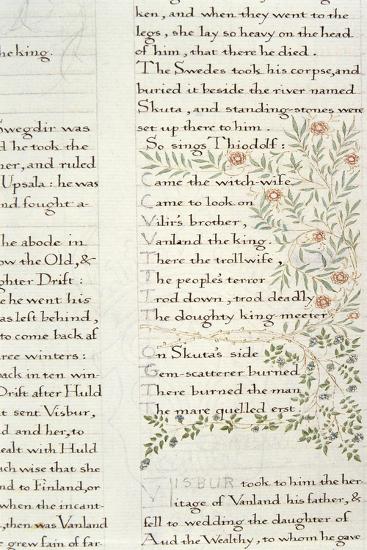 the king.
Swegdir was
d he took the
her, and ruled
Upsala: he was
nd fought a-
he abode in
ow the Old, &
ghter Drift:
he went his
as left behind,
to come back af
ree winters:
back in ten win-
Drift after Huld
t sent Visbur,
d and her, to
dealt with Huld
ach wise that she
nd to Finland, or
when the incant-
, then was Vanland
e grew fain of far-
ken, and when they went to the
legs, she lay so heavy on the head
of him, that there he died.
The Swedes took his corpse, and
buried it beside the river named
Skuta, and standing-stones were
set up there to him.
So sings Thiodolf:
Came the witch-wife
Came to look on
Vilir's brother,
Vanland the king.
There the trollwife,
The people's terror
Trod down, trod deadly
The doughty king-meeter.
On Skuta's side
Gem-scatterer burned
There burned the man
The mare quelled erst
VISBUR took to him the her-
itage of Vanland his father, &
fell to wedding the daughter of
Aud the Wealthy, to whom he gave